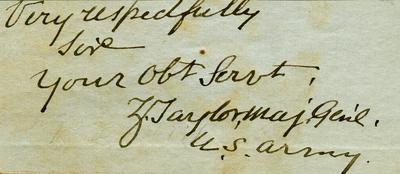 Very respectfully
Sir
Your Obt Servt,
Z. Taylor, Maj. Genl.
U.S. army.